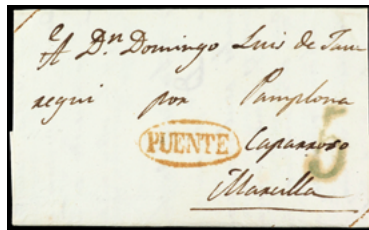 A Dn. Domingo Luis de Jau
regui por Pamplona
PUENTE Caparroso 5
Marcilla